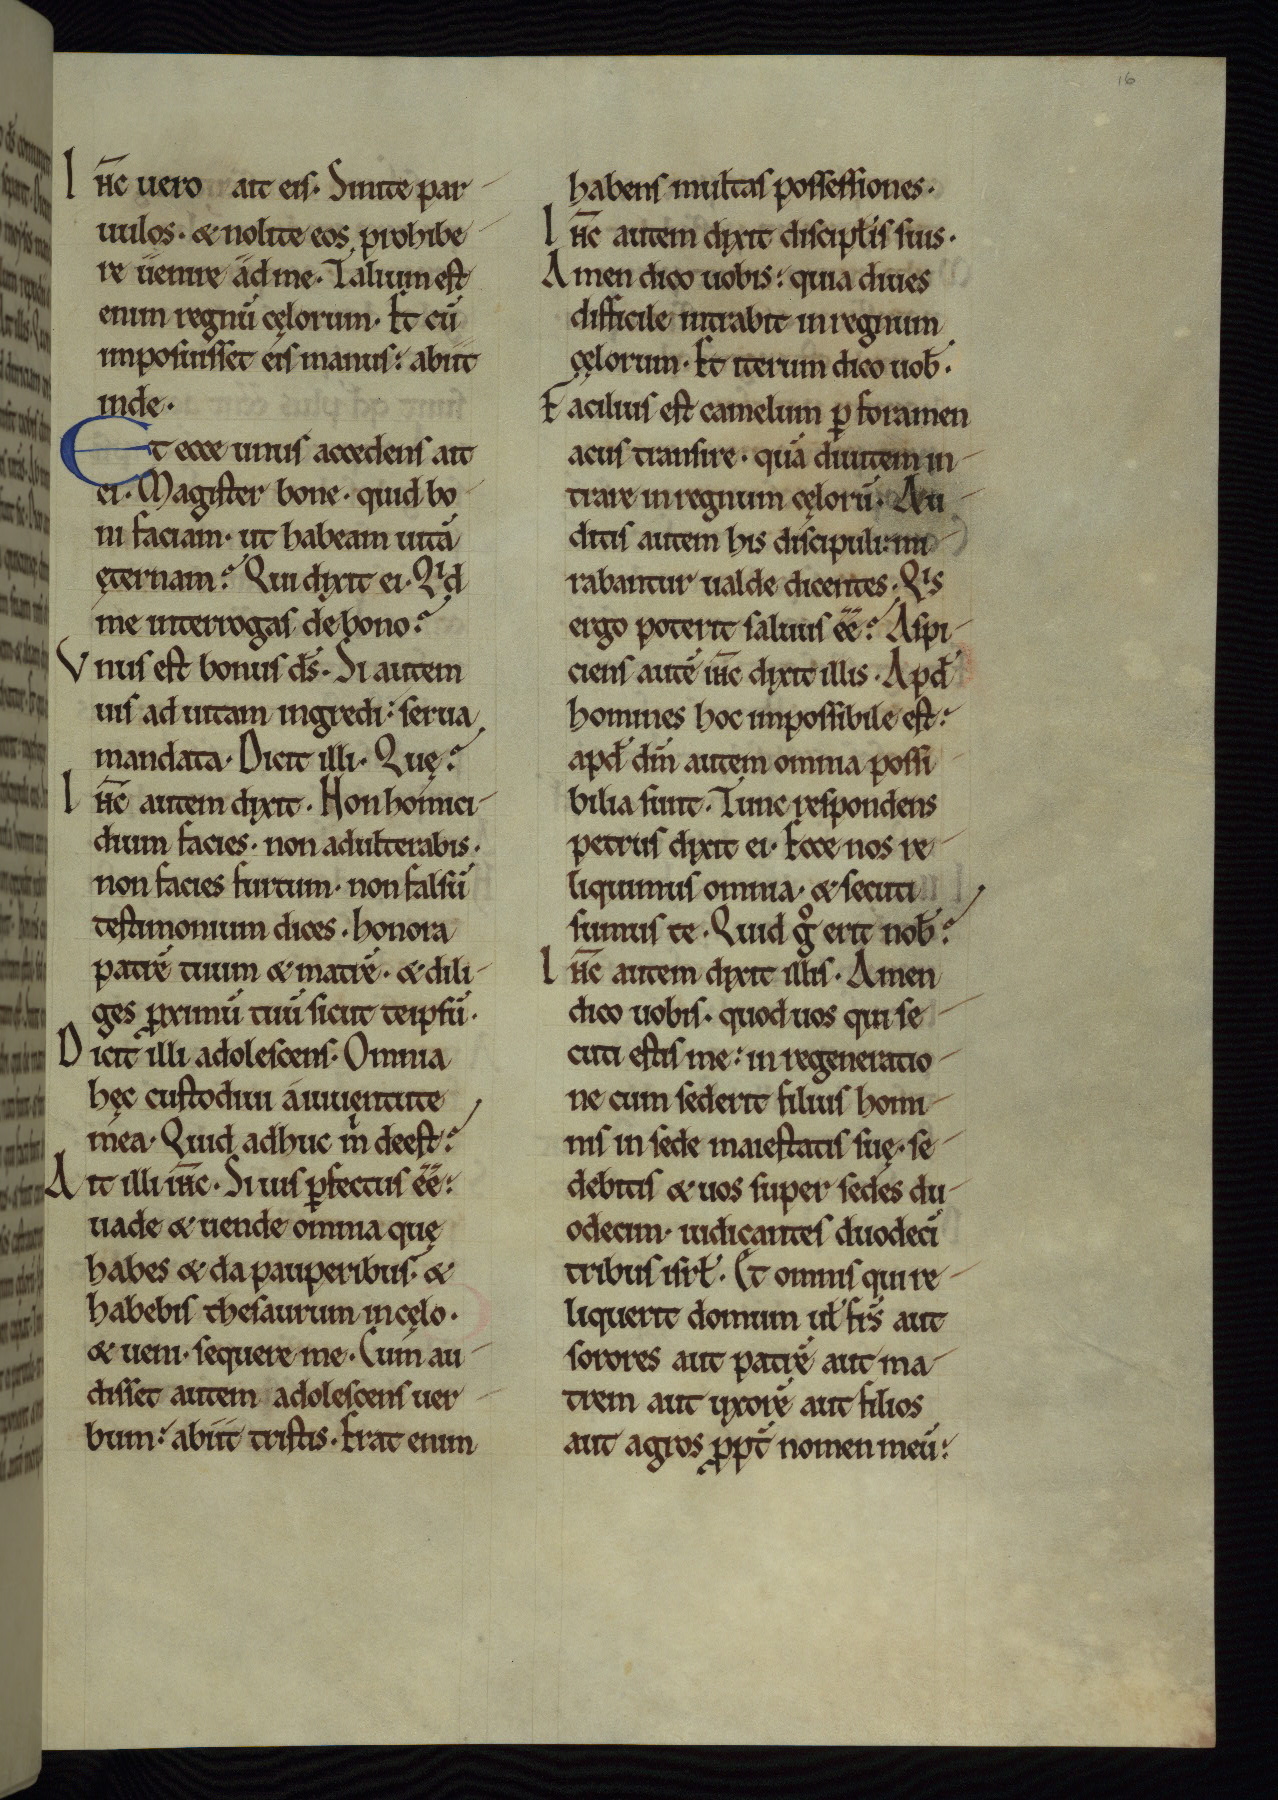 16
Ihc̄ uero ait eis. Sinite par
uulos. & nolite eos prohibe
re uenire ad me. Talium est
enim regnū cęlorum. Et cū
imposuisset eis manus: abiit
inde.
Et ecce unus accedens ait
ei. Magister bone. quid bo
ni faciam. ut habeam uitā
ęternam? Qui dixit ei. Qid
me interrogas de bono?
Vnus est bonus ds̄. Si autem
uis ad uitam ingredi: serua
mandata. Dicit illi. Quę?
Ihc̄ autem dixit. Non homici
dium facies. non adulterabis.
non facies furtum. non falsū
testimonium dices. honora
patrē tuum & matrē. & dili
ges ꝓximū tuū sicut teipsū.
Dicit illi adolescens. Omnia
hęc custodiui a iuuentute
mea. Quid adhuc m̄ deest?
Ait illi ihc̄. Si uis ꝑfectus ēē:
uade & uende omnia quę
habes & da pauperibus. &
habebis thesaurum in cęlo.
& ueni. sequere me. Cum au
disset autem adolescens uer
bum: abiit tristis. Erat enim
habens multas possessiones.
Ihc̄ autem dixit discipl̄is suis.
Amen dico uobis: quia diues
difficile intrabit in regnum
cęlorum. Et iterum dico uob̄.
Facilius est camelum ꝑ foramen
acus transire. quā diuitem in
trare in regnum cęlorū. Au
ditis autem his discipuli: mi
rabantur ualde dicentes. Qis
ergo poterit saluus ēē? Aspi
ciens autē ihc̄ dixit illis. Apd̄
homines hoc impossibile est:
apd̄ dm̄ autem omnia possi
bilia sunt. Tunc respondens
petrus dixit ei. Ecce nos re
liquimus omnia. & secuti
sumus te. Quid gͦ erit nob̄?
Ihc̄ autem dixit illis. Amen
dico uobis. quod uos qui se
cuti estis me: in regeneratio
ne cum sederit filius homi
nis in sede maiestatis suę. se
debitis & uos super sedes du
odecim. iudicantes duodecī
tribus isrl̄. Et omnis qui re
liquerit domum ul̄ frs̄ aut
sorores aut patrē aut ma
trem aut uxorē aut filios
aut agros ꝓpt̄ nomen meū: